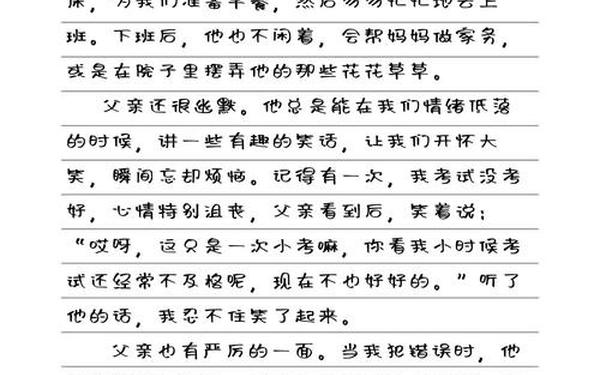 床，为我们准备早餐，然后匆匆忙忙地去上
班。下班后，他也不闲着，会帮妈妈做家务，
或是在院子里摆弄他的那些花花草草。
父亲还很幽默。他总是能在我们情绪低落
的时候，讲一些有趣的笑话，让我们开怀大
笑，瞬间忘却烦恼。记得有一次，我考试没考
好，心情特别沮丧，父亲看到后，笑着说：
“哎呀，这只是一次小考嘛，你看我小时候考
试还经常不及格呢，现在不也好好的。”听了
他的话，我忍不住笑了起来。
父亲也有严厉的一面。当我犯错误时，他